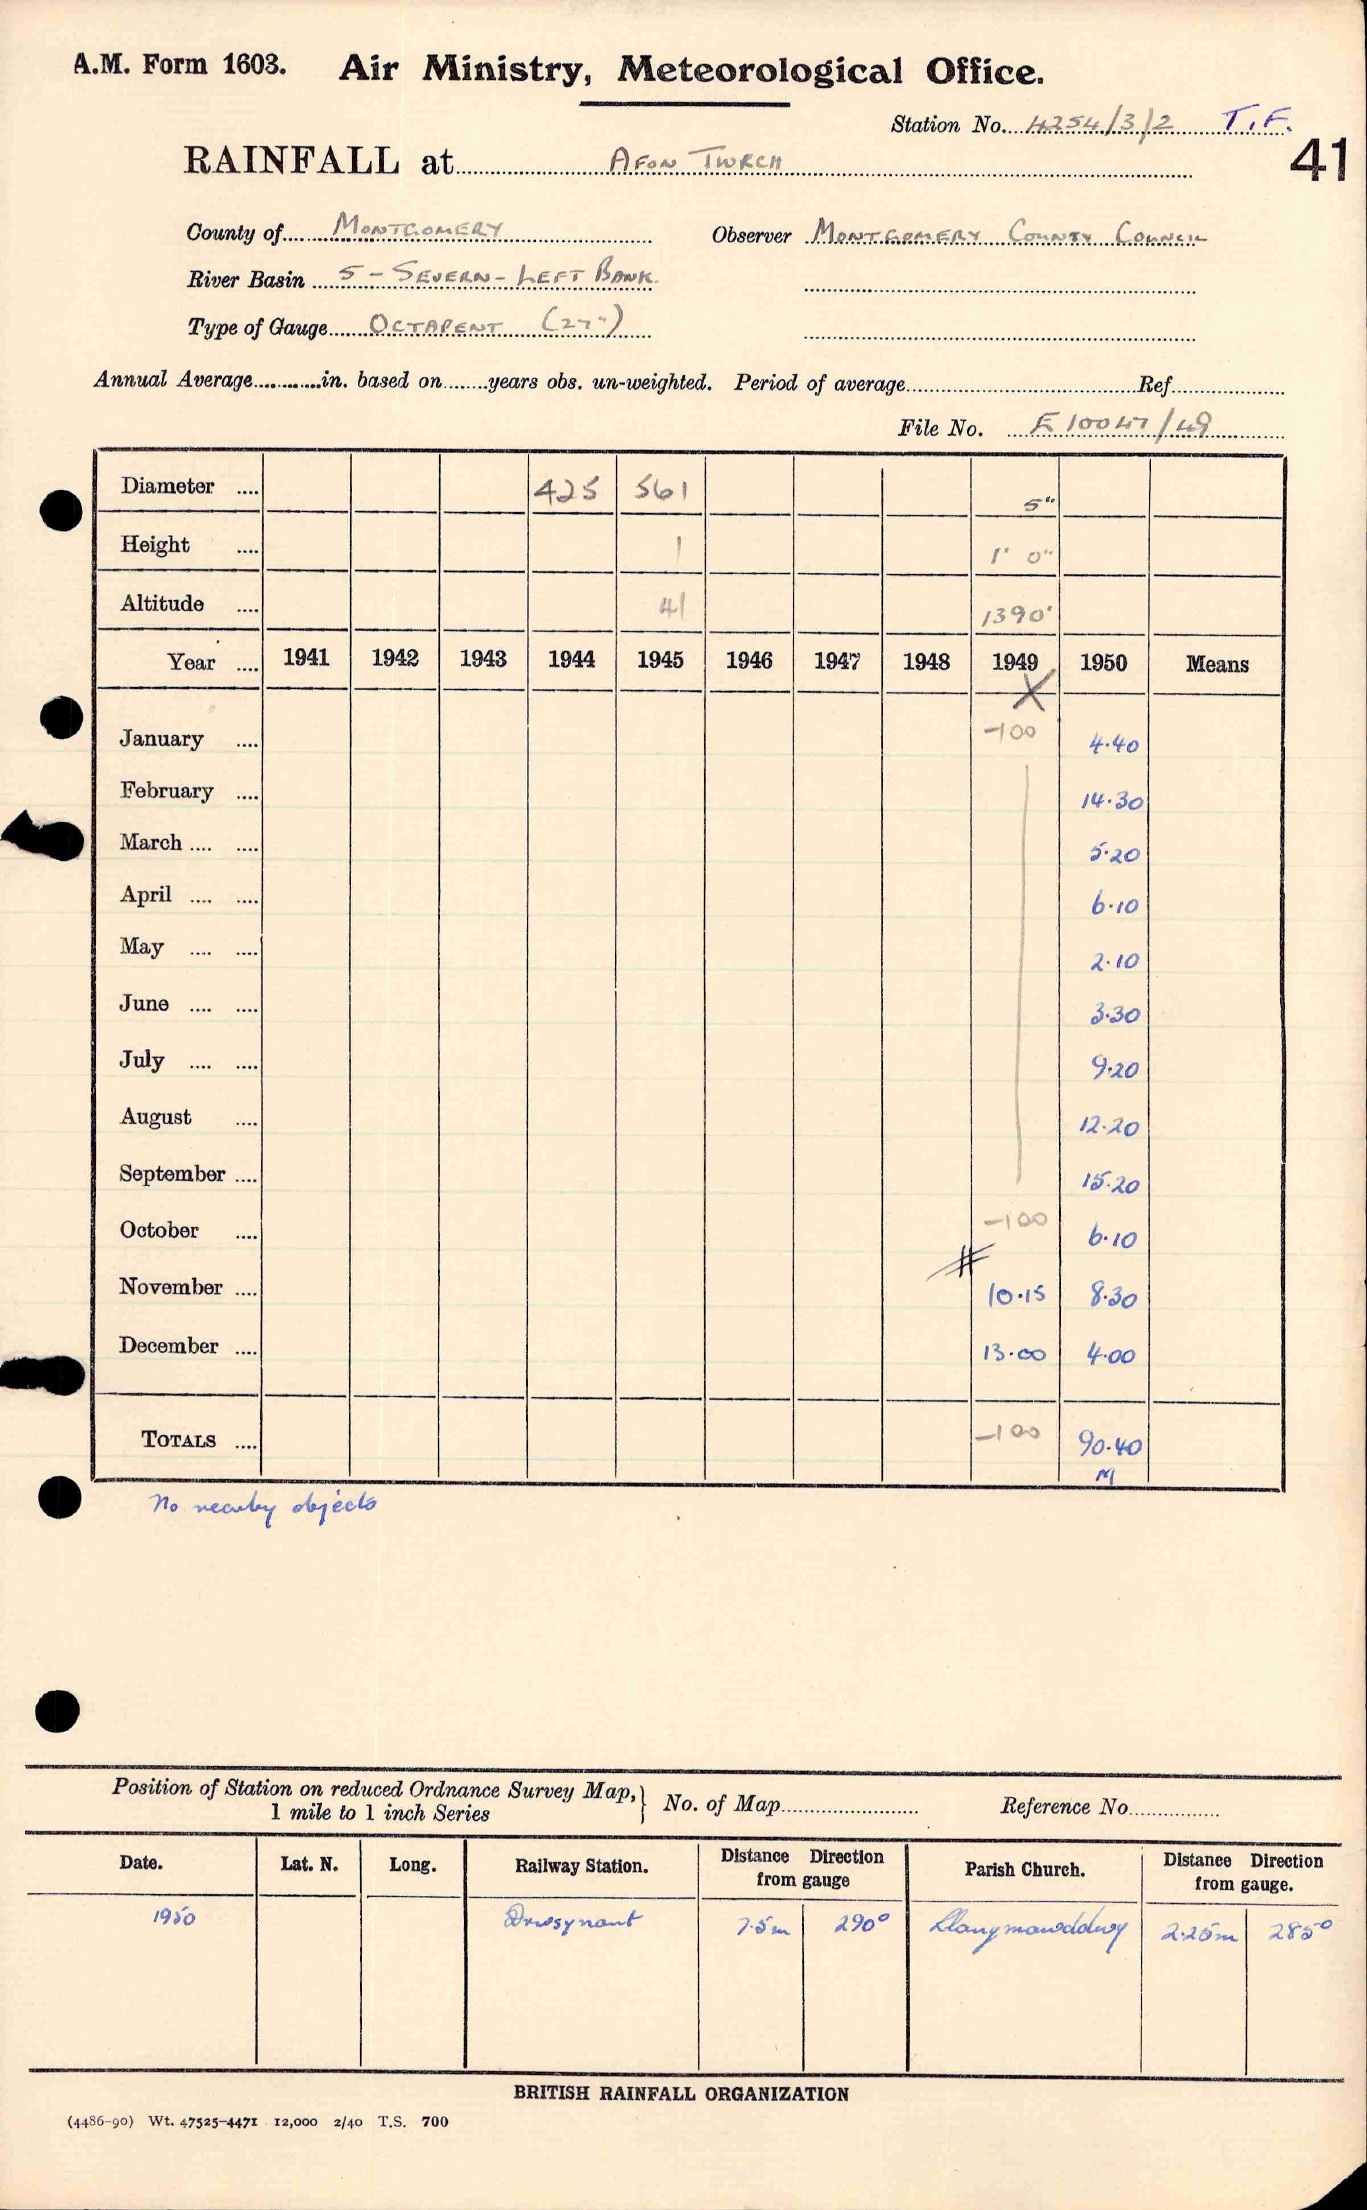 A.M. Form 1603. Air Ministry, Meteorological Office.
Station No. 4254/3/2 T.F.
41
RAINFALL at AFON TWRCH
County of MONTGOMERY Observer MONTGOMERY COUNTY COUNCIL
River Basin 5 - SEVERN - LEFT BANK
Type of Gauge OCTAPENT (27")
Annual Average............in. based on........years obs. un-weighted. Period of average Ref.
File No. E 10047/49
Diameter .... 425 561 5"
Height .... 1 1' 0"
Altitude .... 41 1390'
Year .... 1941 1942 1943 1944 1945 1946 1947 1948 1949 1950 Means
X
January .... -100 4.40
February .... 14.30
March .... .... 5.20
April .... .... 6.10
May .... .... 2.10
June .... .... 3.30
July .... .... 9.20
August .... 12.20
September .... 15.20
October .... -100 6.10
#
November .... 10.15 8.30
December .... 13.00 4.00
TOTALS .... -100 90.40
M
No nearby objects
Position of Station on reduced Ordnance Survey Map,
1 mile to 1 inch Series } No. of Map Reference No.
Date. Lat. N. Long. Railway Station. Distance Direction from gauge Parish Church. Distance Direction from gauge.
1950 Drwsynant 7.5m 290° Llanymawddwy 2.25m 285°
BRITISH RAINFALL ORGANIZATION
(4486-90) Wt. 47525-4471 12,000 2/40 T.S. 700